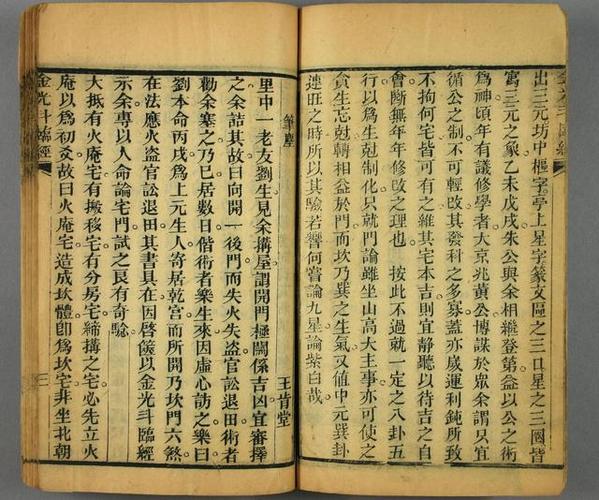 出三元坊中樞字亭上星字篆文區之三口星之三圈皆
寓三元之象乙未戊戌朱公與余相繼登第益以公之術
爲神頃年有議修學者大京兆黃公博謀於眾余謂只宜
循公之制不可輕改其發科之多寡蓋亦歲運利鈍所致
不拘何宅皆可有之維其宅本吉則宜靜聽以待吉之自
會斷無年年修改之理也 按此不過就一定之八卦五
行以爲生尅制化只就門論雖坐山高大主事亦可使之
貪生忘尅轉相益於門而坎乃巽之生氣又値中元巽卦
連旺之時所以其驗若響何嘗論九星論紫白哉
筆塵
王肯堂
里中一老友劉生見余搆屋謂開門極關係吉凶宜審擇
之余詰其故曰向開一後門而失火失盜官訟退田術者
勸余塞之乃已居數日偕術者樂生來因虛心訪之樂曰
劉本命丙戌爲上元生人寄居乾宮而所開乃坎門六煞
在法應火盜官訟退田其書具在因啓篋以金光斗臨經
示余專以人命論宅門試之良有奇驗
大抵有火庵宅有搬移宅有分房宅締搆之宅必先立火
庵以爲初爻故曰火庵宅造成坎體卽爲坎宅非坐北朝
金光斗臨經
三